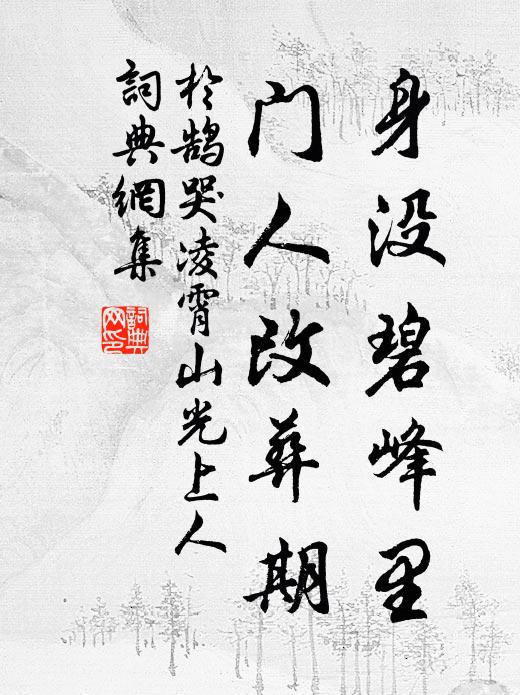 身没碧峰里
门人改葬期
於鹄哭凌霄山光上人
詞典網集
詞典网印